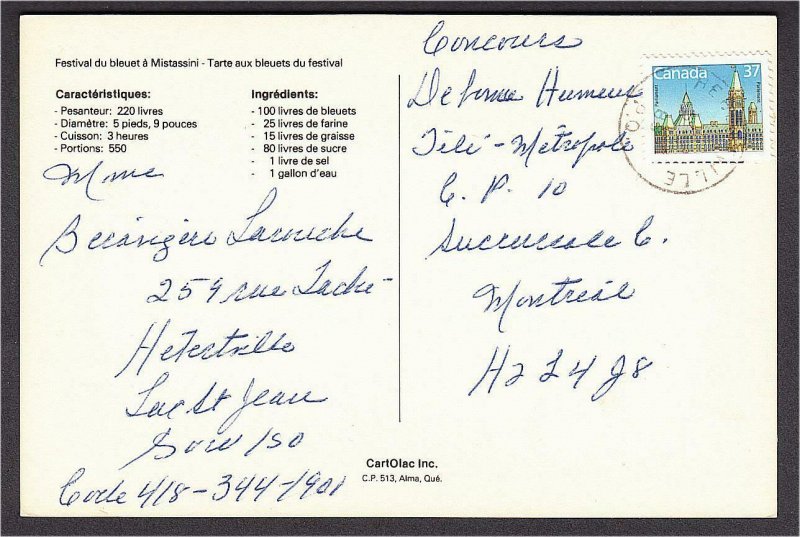 Festival du bleuet à Mistassini - Tarte aux bleuets du festival
Caractéristiques:
- Pesanteur: 220 livres
- Diamètre: 5 pieds, 9 pouces
- Cuisson: 3 heures
- Portions: 550
Ingrédients:
- 100 livres de bleuets
- 25 livres de farine
- 15 livres de graisse
- 80 livres de sucre
- 1 livre de sel
- 1 gallon d'eau
Mme
Berangère Larouche
259 rue
Hebertville
Lac St Jean
Gow 1S0
Code 418-344-1901
Concours
De bonne Humeur
Télé-Métropole
C. P. 10
Succursale C.
Montréal
H2L4J8
Canada 37
CartOlac Inc.
C.P. 513, Alma, Qué.